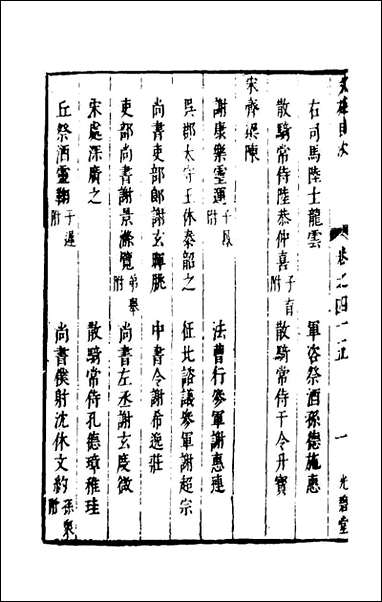 文雄目次
卷之四十五
一
光碧堂
右司馬陸士龍雲
軍咨祭酒孫德施惠
散騎常侍陸恭仲喜 子育附
散騎常侍干令升寶
宋齊梁陳
謝康樂靈運 附
法曹行參軍謝惠連
吳郡太守王休泰韶之
征北諮議參軍謝超宗
尚書吏部郎謝玄暉朓
中書令謝希逸莊
吏部尚書謝景滌覽 弟舉附
尚書左丞謝玄度微
宋處深廣之
散騎常侍孔德璋稚珪
丘祭酒靈鞠 子遲附
尚書僕射沈休文約 孫衆附